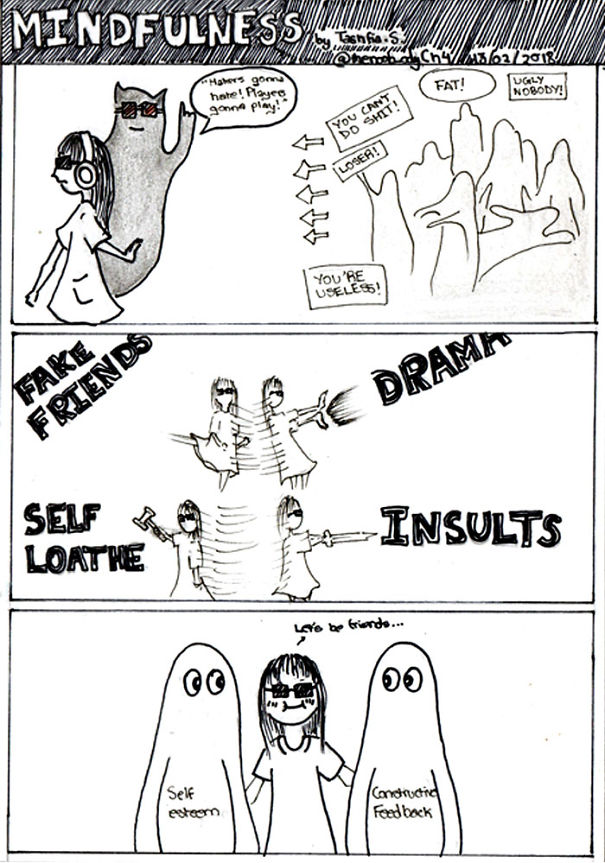 MINDFULNESS
by Tashfia.S.
18/02/2018
"Haters gonna
hate! Players
gonna play!"
YOU CAN'T
DO SHIT!
FAT!
UGLY
NOBODY!
LOSER!
YOU'RE
USELESS!
FAKE
FRIENDS
DRAMA
SELF
LOATHE
INSULTS
Let's be friends...
Self
esteem
Constructive
Feedback